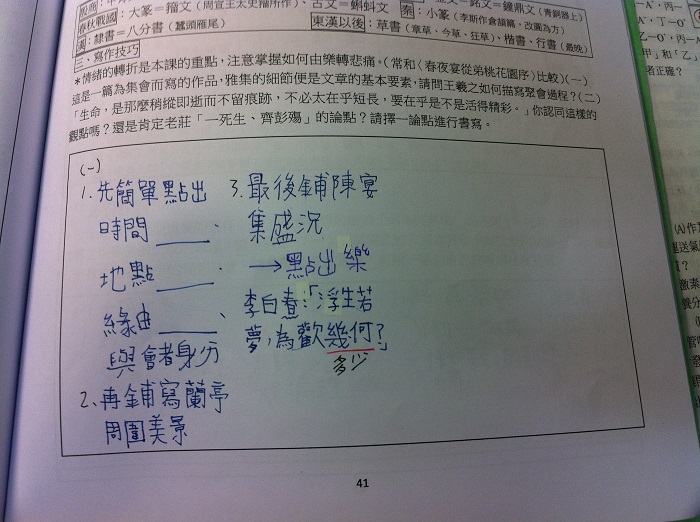 春秋戰國：大篆=籀文（周宣王太史籀所作）、古文=蝌蚪文 秦：小篆（李斯作倉頡篇，改圓為方）
漢：隸書=八分書（蠶頭雁尾） 東漢以後：草書（章草、今草、狂草）、楷書、行書（最晚）
三、寫作技巧
＊情緒的轉折是本課的重點，注意掌握如何由樂轉悲痛。（常和〈春夜宴從弟桃花園序〉比較）（一）
這是一篇為集會而寫的作品，雅集的細節便是文章的基本要素，請問王羲之如何描寫聚會過程？（二）
「生命，是那麼稍縱即逝而不留痕跡，不必太在乎短長，要在乎是不是活得精彩。」你認同這樣的
觀點嗎？還是肯定老莊「一死生、齊彭殤」的論點？請擇一論點進行書寫。
(一)
1. 先簡單點出
時間____、
地點____、
緣由____、
與會者身分
2、再鋪寫蘭亭
周圍美景
3. 最後鋪陳宴
集盛況
→點出樂
李白春：「浮生若
夢，為歡幾何？
多少
41